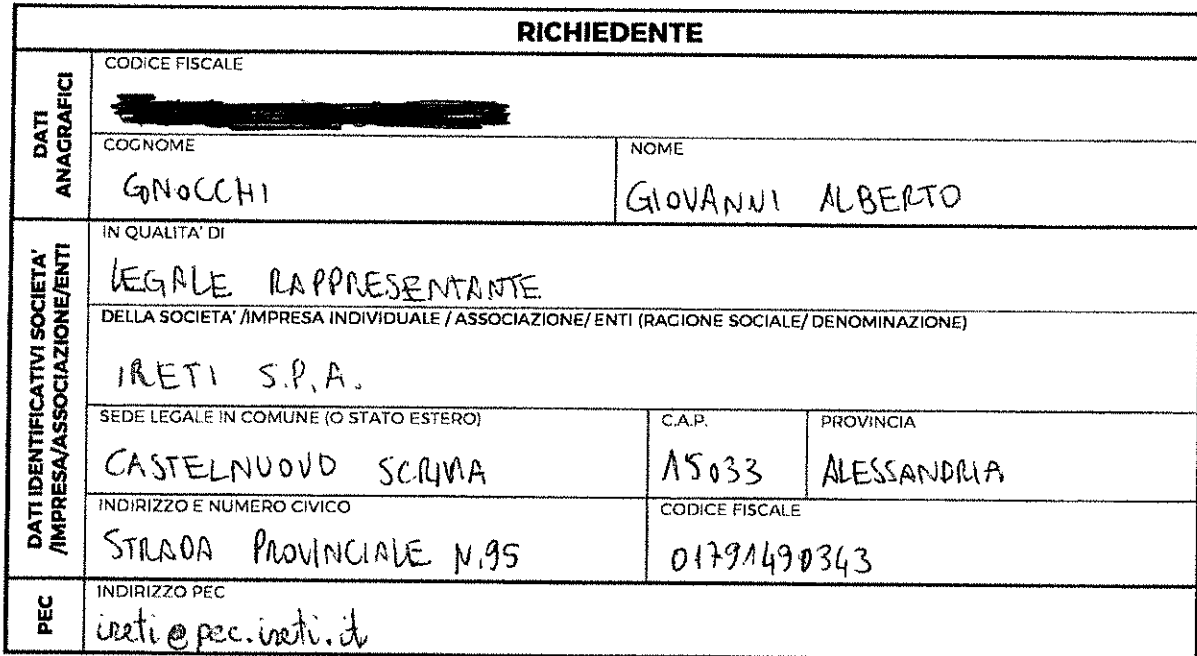 RICHIEDENTE
DATI
ANAGRAFICI
CODICE FISCALE
COGNOME
GNOCCHI
NOME
GIOVANNI ALBERTO
DATI IDENTIFICATIVI SOCIETA'
/IMPRESA/ASSOCIAZIONE/ENTI
IN QUALITA' DI
LEGALE RAPPRESENTANTE
DELLA SOCIETA' /IMPRESA INDIVIDUALE / ASSOCIAZIONE/ ENTI (RAGIONE SOCIALE/ DENOMINAZIONE)
IRETI S.P.A.
SEDE LEGALE IN COMUNE (O STATO ESTERO)
CASTELNUOVO SCRIVIA
C.A.P.
15033
PROVINCIA
ALESSANDRIA
INDIRIZZO E NUMERO CIVICO
STRADA PROVINCIALE N.95
CODICE FISCALE
01791490343
PEC
INDIRIZZO PEC
ireti@pec.ireti.it